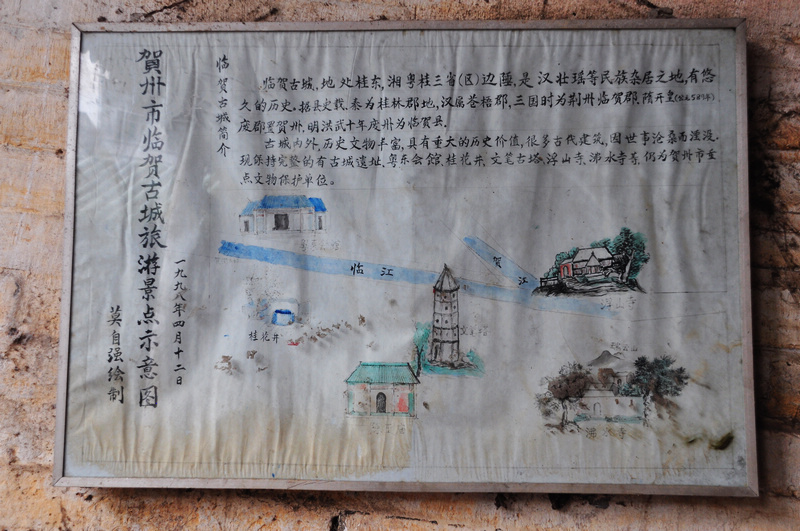 賀州市临贺古城旅游景点示意图
一九九八年四月十二日
莫自强绘制
临贺古城简介
临贺古城,地处桂东,湘粤桂三省(区)边陲,是汉壮瑶等民族杂居之地,有悠
久的历史。据县史载,秦为桂林郡地,汉属苍梧郡,三国时为荆州临贺郡,隋开皇
废郡置贺州,明洪武十年废州为临贺县。
古城内外,历史文物丰富,具有重大的历史价值,很多古代建筑,因世事沧桑而湮没。
现保持完整的有古城遗址、粤东会馆、桂花井、文笔古塔、浮山寺、沸水寺等,仍为贺州市重
点文物保护单位。
临江
贺江
浮山寺
桂花井
沸水寺